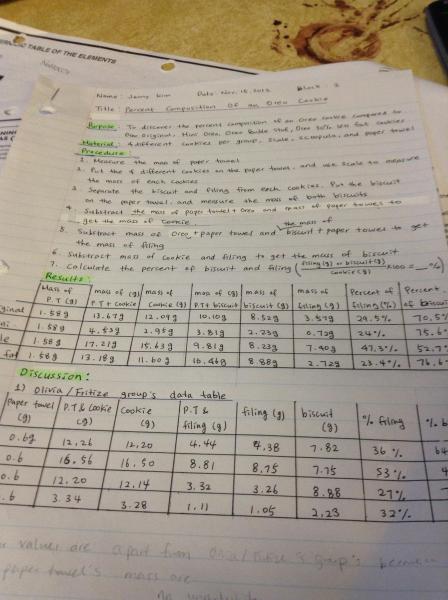 TABLE OF THE ELEMENTS
Name: Jenny Kim Date: Nov. 18, 2013 Block: 2
Title: Percent Composition Of an Oreo Cookie
Purpose: To discover the percent composition of an Oreo cookie compared to
Oreo Original Mini Oreo, Oreo Double Stuf, Oreo 30% less fat cookies
Material: 4 different cookies per group, scale, scupula, and paper towel
Procedure:
1. Measure the mass of paper towel
2. Put the 4 different cookies on the paper towel, and use scale to measure
the mass of each cookies
3. Separate the biscuit and filing from each cookies. Put the biscuit
on the paper towel, and measure the mass of both biscuits
4. Substract the mass of paper towel + Oreo and mass of paper towel to
get the mass of cookie
the mass of
5. Substract mass of Oreo + paper towel and biscuit + paper towel to get
the mass of filing
6. Substract mass of cookie and filing to get the mass of biscuit
7. Calculate the percent of biscuit and filing (filing (g) or biscuit (g) / cookie (g) x100 = __%)
Results:
Mass of P.T (g) mass of (g) P.T + cookie mass of cookie (g) mass of (g) P.T + biscuit mass of biscuit (g) mass of filing (g) Percent of filing (%) Percent of biscuit
ginal 1.58g 13.67g 12.09g 10.10g 8.52g 3.57g 29.5% 70.5%
1.58g 4.53g 2.95g 3.81g 2.23g 0.72g 24% 75.6
le 1.58g 17.21g 15.63g 9.81g 8.23g 7.40g 47.3% 52.7
fat 1.58g 13.18g 11.60g 10.46g 8.88g 2.72g 23.4% 76.6
Discussion:
1) Olivia / Fritize group's data table
Paper towel (g) P.T & Cookie (g) Cookie (g) P.T & filing (g) filing (g) biscuit (g) % filing % b
0.6g 12.26 12.20 4.44 4.38 7.82 36% 64
0.6 16.56 16.50 8.81 8.75 7.75 53%
0.6 12.20 12.14 3.32 3.26 8.88 27%
.6 3.34 3.28 1.11 1.05 2.23 32%
values are apart from Olivia / Fritize's group's because
paper towel's mass are